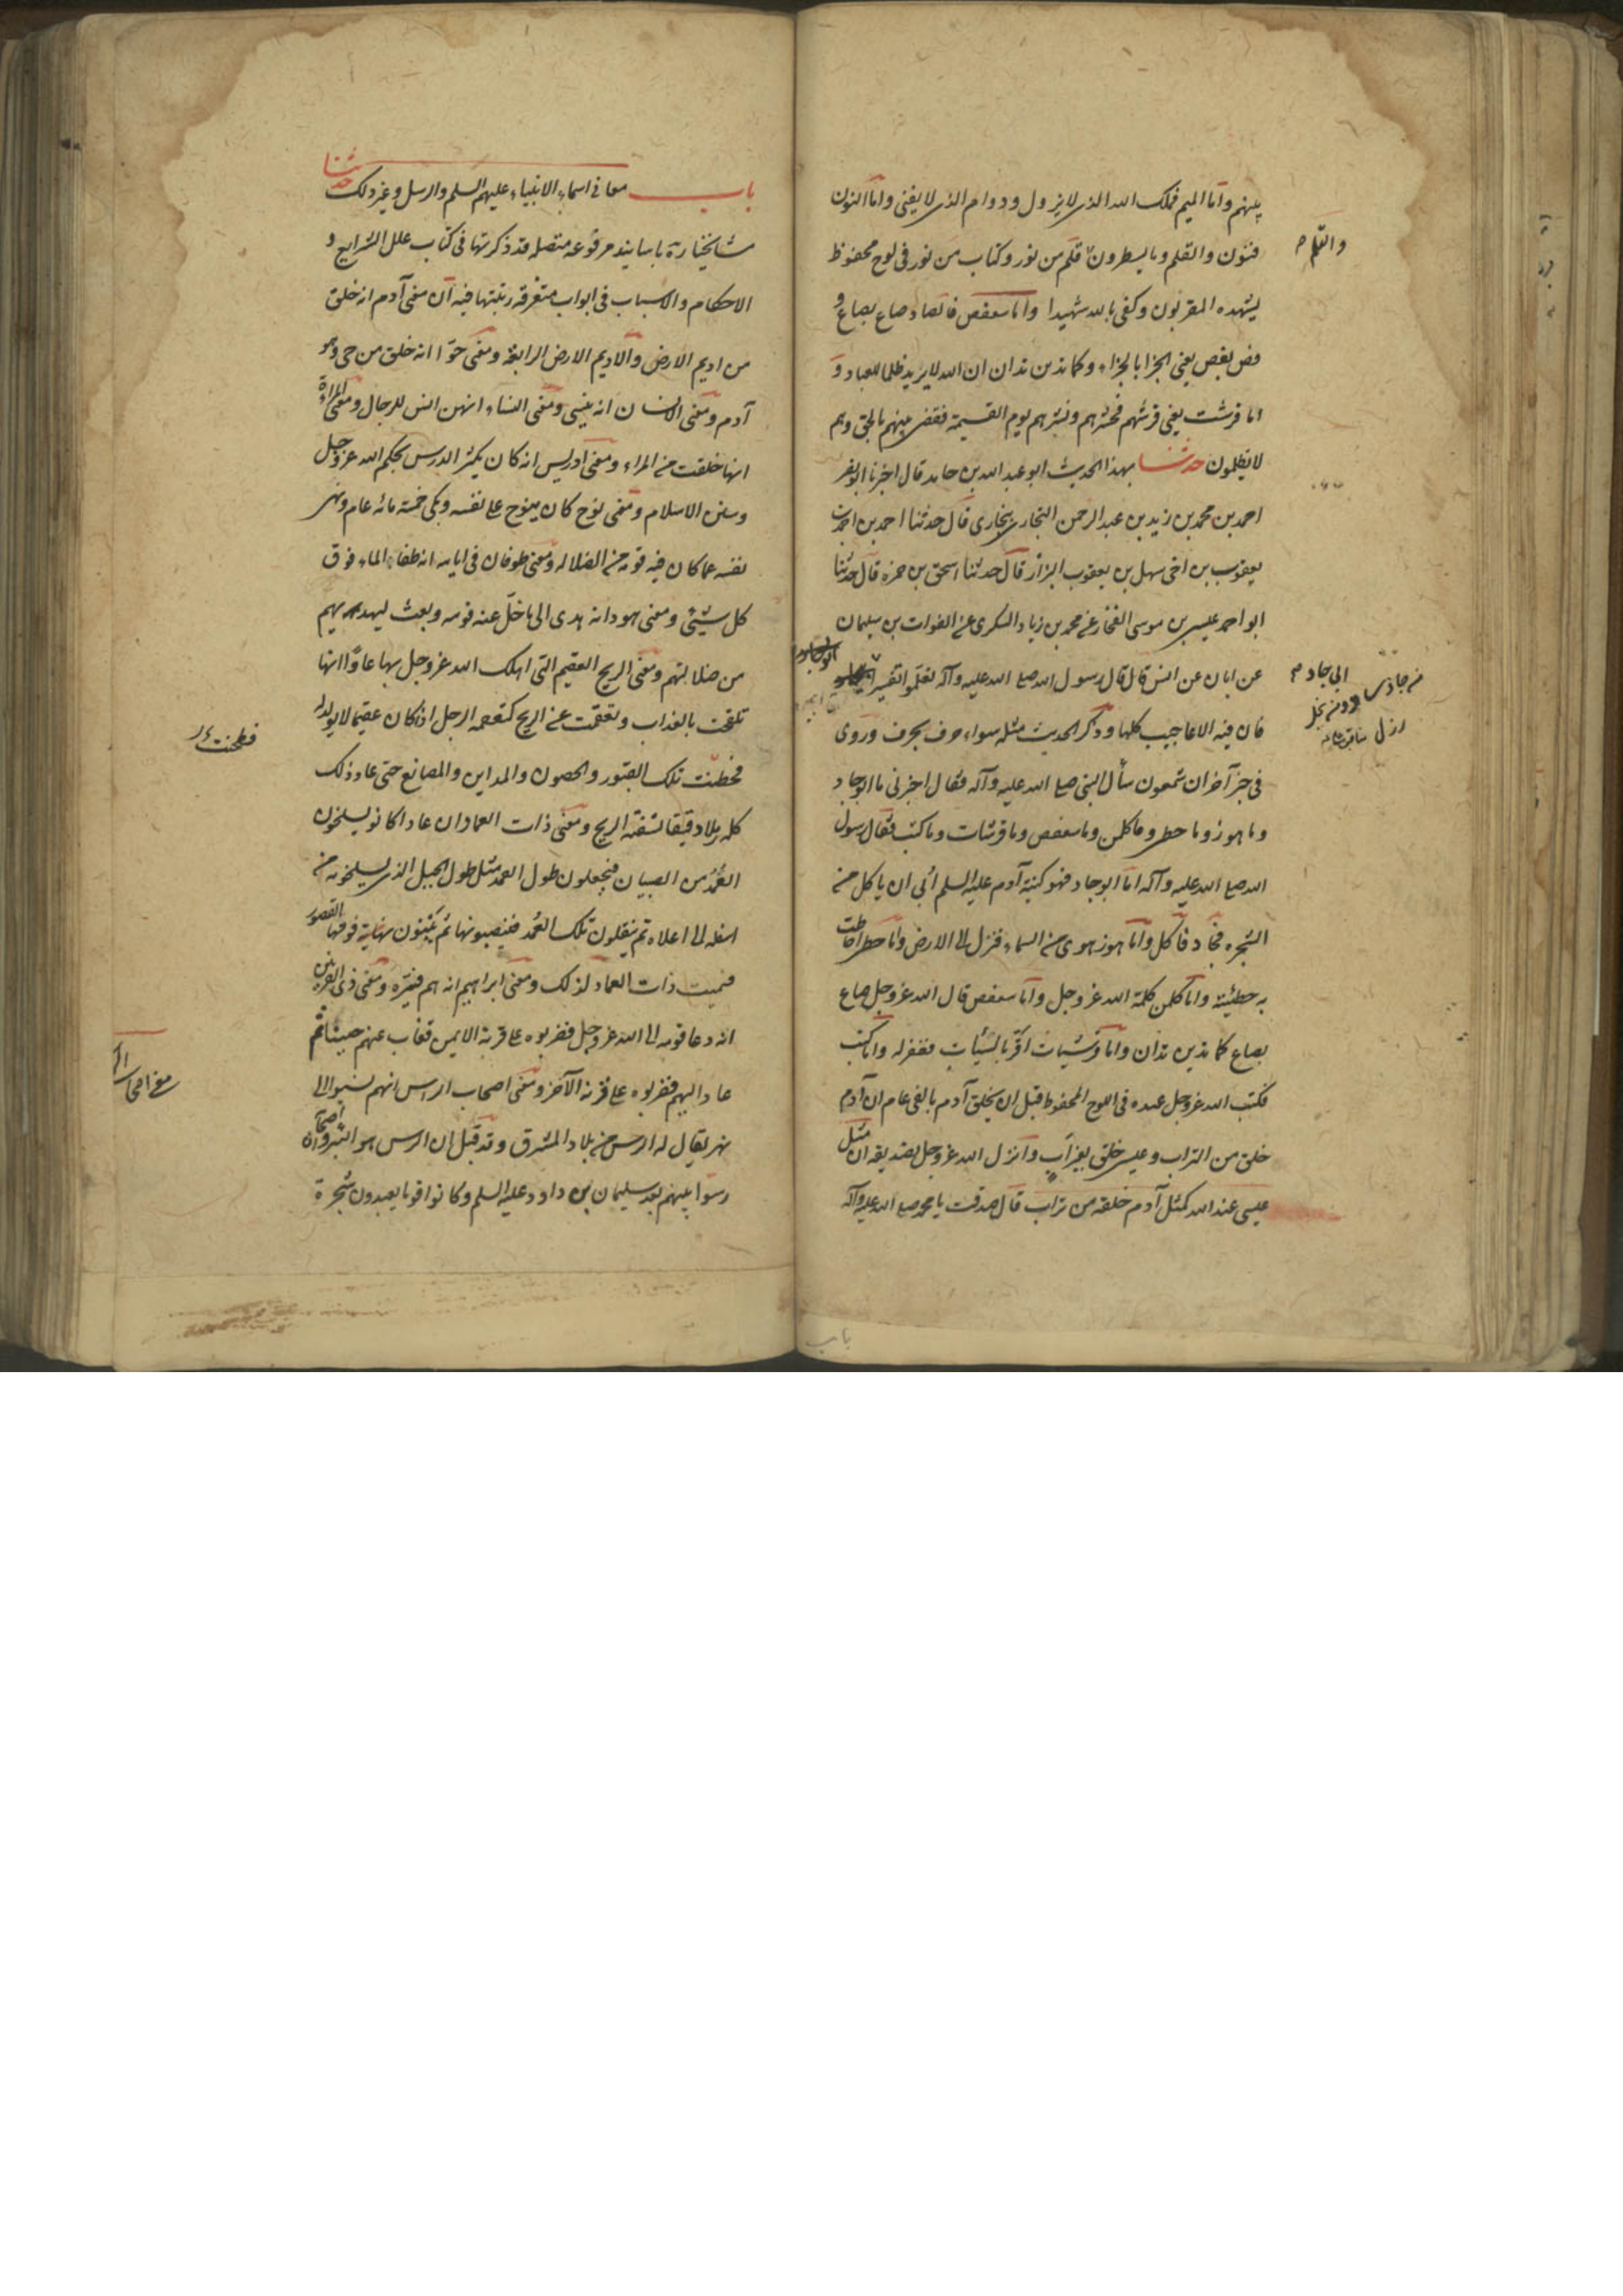 بينهم واما الميم فملك الله الذى لا يزول ودوام الذى لا يفنى واما النون
فنون والقلم وما يسطرون قلم من نور وكتاب من نور فى لوح محفوظ
والقلم
يشهده المقربون وكفى بالله شهيدا واما سعفص فالصاد صاع بصاع و
فص بفص يعنى الجزا بالجزاء وكما تدين تدان ان الله لا يريد ظلما للعباد و
اما قرشت يعنى قرشهم فحشرهم ونشرهم يوم القيمة فقضى بينهم بالحق وهم
لا يظلمون حدثنا بهذا الحديث ابو عبد الله بن حامد قال اخبرنا ابو نصر
احمد بن محمد بن زيد بن عبد الرحمن البخارى ببخارى قال حدثنا احمد بن احمد بن
يعقوب بن اخى سهل بن يعقوب البزاز قال حدثنا اسحق بن حمزه قال حدثنا
ابو احمد عيسى بن موسى الغنجار عن محمد بن زياد السكرى عن الفرات بن سليمان
عن ابان عن انس قال قال رسول الله صلى الله عليه وآله تعلموا تفسير
ابى جاد
فان فيه الاعاجيب كلها وذكر الحديث مثله سواء حرف بحرف وروى
فى خبر آخر ان شمعون سأل النبى صلى الله عليه وآله فقال اخبرنى ما ابو جاد
وما هوز وما حطى وما كلمن وما سعفص وما قرشات وما كتب فقال رسول
الله صلى الله عليه وآله اما ابو جاد فهو كنية آدم عليه السلم أبى ان ياكل من
الشجره فجاد فأكل واما هوز هوى من السماء فنزل الى الارض واما حطى احاطت
به خطيئته واما كلمن كلمة الله عز وجل واما سعفص قال الله عز وجل صاع
بصاع كما تدين تدان واما قرشيات اقر بالسيئات فغفر له واما كتب
فكتب الله عز وجل عنده فى اللوح المحفوظ قبل ان يخلق آدم بالفى عام ان آدم
خلق من التراب وعيسى خلق بغير أب وانزل الله عز وجل تصديقه ان مثل
عيسى عند الله كمثل آدم خلقه من تراب قال صدقت يا محمد صلى الله عليه وآله
باب
باب معانى اسماء الانبياء عليهم السلم والرسل وغير ذلك حدثنا
مشايخنا ره باسانيد مرفوعه متصله قد ذكرتها فى كتاب علل الشرايع و
الاحكام والاسباب فى ابواب متفرقه رتبتها فيه ان معنى آدم انه خلق
من اديم الارض والاديم الارض الرابعة ومعنى حوا انه خلق من حى وهو
آدم ومعنى الانسان انه ينسى ومعنى النساء انهن انس للرجال ومعنى المراة
انها خلقت من المراء ومعنى ادريس انه كان يكثر الدرس بحكم الله عز وجل
وسنن الاسلام ومعنى نوح كان ينوح على نفسه وبكى خمسة مائه عام ونحى
نفسه عما كان فيه قومه من الضلاله ومعنى طوفان فى ايامه انه طفاء الماء فوق
كل شيئى ومعنى هود انه هدى الى ما ضل عنه قومه وبعث ليهديهم
من ضلالتهم ومعنى الريح العقيم التى اهلك الله عز وجل بها عادا انها
تلقحت بالعذاب وتعقمت عن الريح كتعقم الرجل اذا كان عقيما لا يولد له
فطحنت
فحطنت تلك القبور والحصون والمداين والمصانع حتى عاد ذلك
كله رملا دقيقا تسفته الريح ومعنى ذات العماد ان عادا كانو يسلخون
العمد من الجبال فيجعلون طول العمد مثل طول الجبل الذى يسلخونه من
اسفله الى اعلاه ثم ينقلون تلك العمد فينصبونها ثم يبنون فوقها القصور
فسميت ذات العماد لذلك ومعنى ابراهيم انه هم فبره ومعنى ذى القرنين
انه دعا قومه الى الله عز وجل فضربوه على قرنه الايمن فغاب عنهم حينا ثم
عاد اليهم فضربوه على قرنه الآخر ومعنى اصحاب الرس انهم نسبوا الى
نهر يقال له الرس من بلاد المشرق وقد قيل ان الرس هو البئر وان اصحابه
رسوا نبيهم بعد سليمان بن داود عليه السلم وكانوا قوما يعبدون شجرة